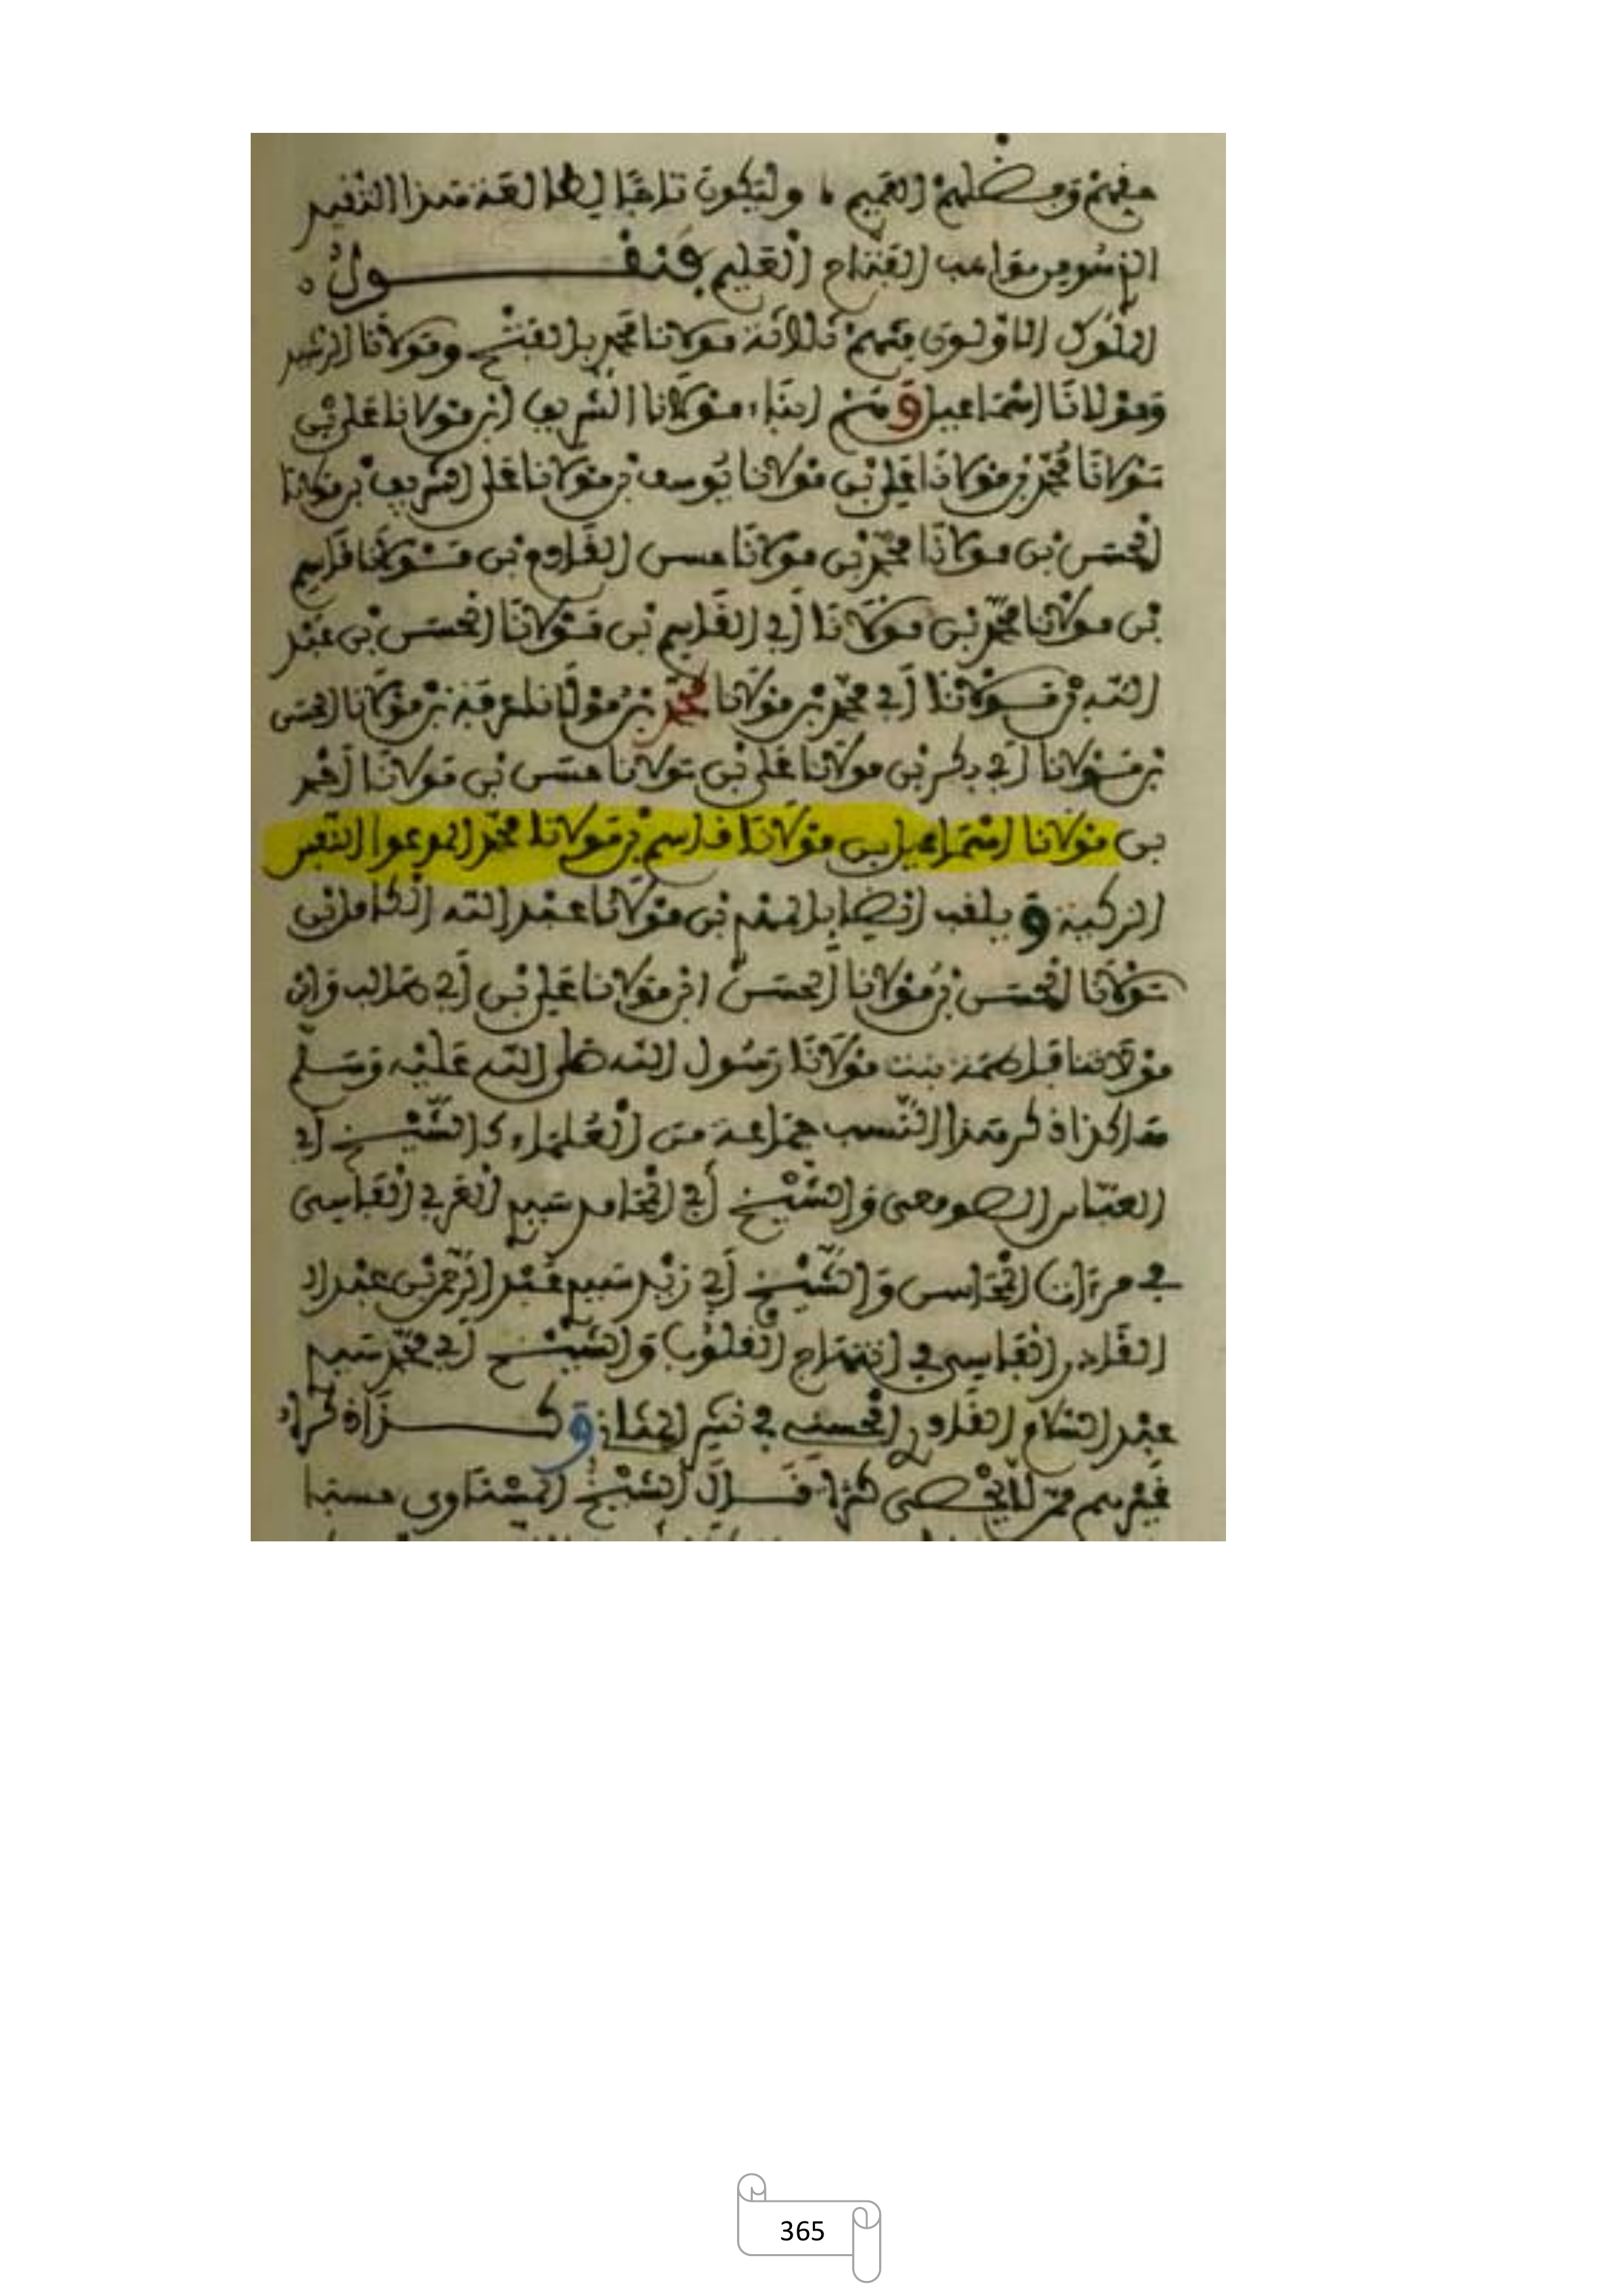 وفضلهم العميم ولتكون تاجا لطالعة هذا التقييد
بمواهب الفتاح العليم فنقول
الملوك الأولون منهم ثلاثة مولانا محمد بالفتح ومولانا الرشيد
ومولانا إسماعيل ومن أبناء مولانا الشريف ابن مولانا علي بن
مولانا محمد بن مولانا علي بن مولانا يوسف بن مولانا علي الشريف بن مولانا
الحسن بن مولانا محمد بن مولانا حسن القادم بن مولانا قاسم
بن مولانا محمد بن مولانا أبي القاسم بن مولانا الحسن بن عبد
الله بن مولانا أبي محمد بن مولانا محمد بن مولانا عرفة بن مولانا الحسن
بن مولانا أبي بكر بن مولانا علي بن مولانا حسن بن مولانا أحمد
بن مولانا إسماعيل بن مولانا قاسم بن مولانا محمد المدعوا النفس
الزكية ويلقب أيضا بالمهدي بن مولانا عبد الله الكامل بن
مولانا الحسن بن مولانا الحسن ابن مولانا علي بن أبي طالب وابن
مولاتنا فاطمة بنت مولانا رسول الله صلى الله عليه وسلم
هاكذا ذكر هذا النسب جماعة من العلماء كالشيخ أبي
العباس الصومعي والشيخ أبي المحامد سيدي العربي الفاسي
في مرآت المحاسن والشيخ أبي زيد سيدي عبد الرحمن بن عبد
القادر الفاسي في ابتهاج القلوب والشيخ أبي محمد سيدي
عبد السلام القادري الحسني في وكذا ذكره
غيرهم ممن لا يحصى كثرة قال الشيخ المسناوي حسبما
365